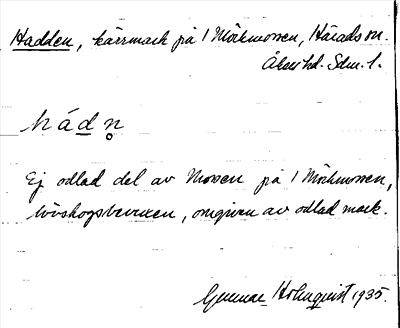 Hadden, kärrmark på 1 Mörkmossen, Härads sn.
Åkers hd. Sdm. l.
hádn̥
Ej odlad del av Mossen på 1 Mörkmossen,
lövskogsbevuxen, omgiven av odlad mark.
Gunnar Holmquist 1935.